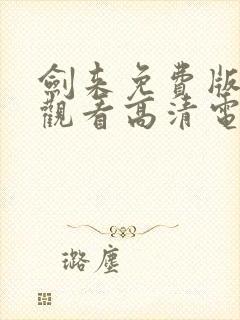 劍来免費版
觀看高清電
璐塵